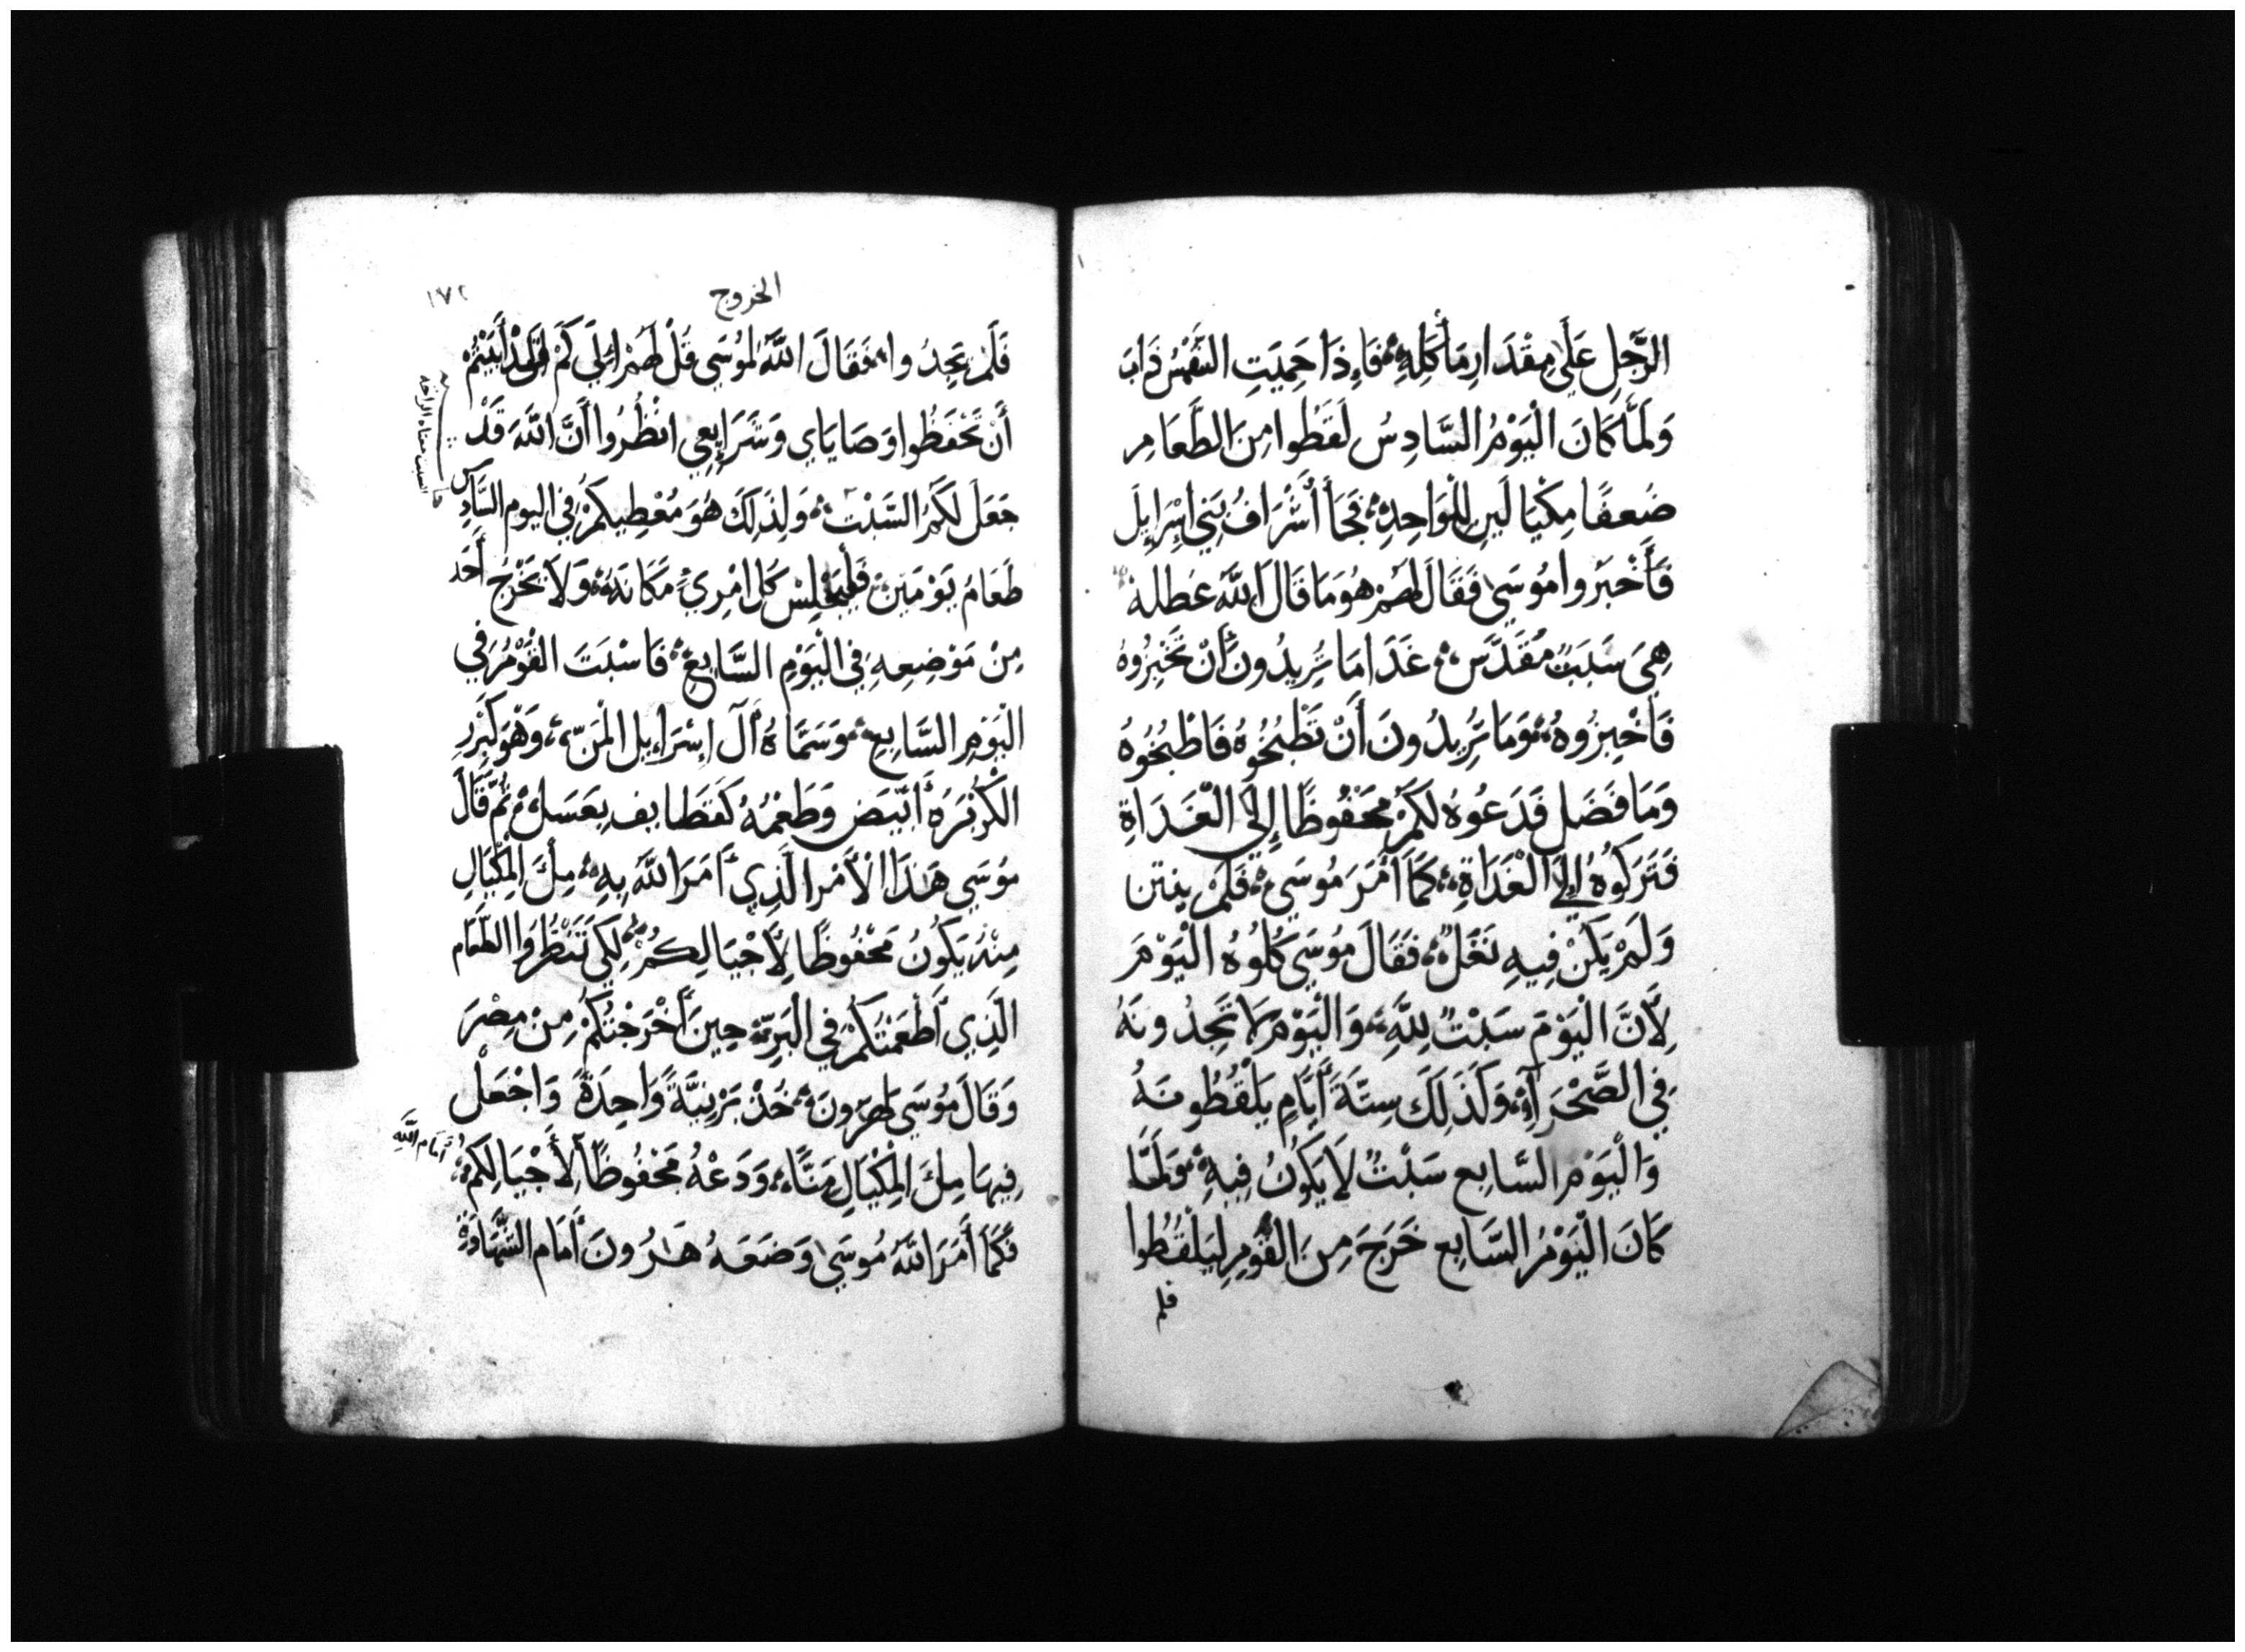 الرَّجُلِ عَلَى مِقْدَارِ مَأْكَلِهِ فَإِذَا حَمِيَتِ الشَّمْسُ ذَابَ
وَلَمَّا كَانَ الْيَوْمُ السَّادِسُ لَقَطُوا مِنَ الطَّعَامِ
ضُعفًا مِكْيَالَينِ لِلْوَاحِدِ فَجَا أَشْرَافُ بَنِي إِسْرَايِلَ
فَأَخْبَرُوا مُوسَى فَقَالَ لَهُمْ هُوَ مَا قَالَ اللَّهُ عُطلة
هِيَ سَبَتٌ مُقَدَّس غَدَا مَا تُرِيدُونَ أَنْ تَخْبِزُوهُ
فَاخْبِزُوهُ وَمَا تُرِيدُونَ أَنْ تَطْبُخُوهُ فَاطْبُخُوهُ
وَمَا فَضَلَ فَدَعُوهُ لَكُمْ مَحْفُوظًا إِلَى الْغَدَاةِ
فَتَرَكُوهُ إِلَى الْغَدَاةِ كَمَا أَمَرَ مُوسَى فَلَمْ ينتن
وَلَمْ يَكُنْ فِيهِ نَغَلٌ فَقَالَ مُوسَى كُلُوهُ الْيَوْمَ
لِأَنَّ الْيَوْمَ سَبْتٌ لِلَّهِ وَالْيَوْمَ لَا تَجِدُونَهُ
فِي الصَّحْرَآءِ وَكَذَلِكَ سِتَّةَ أَيَّامٍ يَلْقُطُونَهُ
وَالْيَوْمِ السَّابِعِ سَبْتٌ لَا يَكُونُ فِيهِ وَلَمَّا
كَانَ الْيَوْمُ السَّابِع خَرَجَ مِنَ الْقَوْمِ لِيَلْقُطُوا
فلم
الخروج
١٧٢
فَلَمْ يَجِدُوا فَقَالَ اللَّهُ لِمُوسَى قُلْ لَهُمْ إِلَى كَمْ أَبَيْتُمْ
أَنْ تَحْفَظُوا وَصَايَاي وَشَرَايِعِي انْظُرُوا أَنَّ اللَّهَ قَدْ
جَعَلَ لَكُمُ السَّبْتَ وَلِذَلِكَ هُوَ مُعْطِيكُمْ فِي اليوم السَّادِس
طَعَامُ يَوْمَيْنِ فَلْيَجْلِسْ كُل امْرِيٍ مَكَانَهُ وَلَا يَخْرُجُ أَحَد
مِنْ مَوْضِعِهِ فِي الْيَوْمِ السَّابِعِ فَاسْبَتَ الْقَوْمُ فِي
الْيَوْمِ السَّابِعِ وَسَمَّاهُ آل إِسْرَايل الْمَنّ وَهْوَ كَبَزْرِ
الْكُزْبَرَة أَبْيَض وَطَعْمُهُ كَقَطَايف بِعَسَل ثُمَّ قَالَ
مُوسَى هَذَا الْأَمْرُ الَّذِي أَمَرَ اللَّهُ بِهِ مِلْءَ الْمِكْيَالِ
مِنْهُ يَكُونُ مَحْفُوظًا لِأَجْيَالِكُمْ لِكَيْ تَنْظُرُوا الطَّعَام
الَّذِي أَطْعَمْتُكُمْ فِي الْبَرِّيَّة حِينَ أَخْرَجْتُكُمْ مِنْ مِصْرَ
وَقَالَ مُوسَى لِهَرُونَ خُذْ بَرْنِيَّةً وَاحِدَةً وَاجْعَلْ
فِيهَا مِلْءَ الْمِكْيَالِ مَنًّا وَدَعْهُ مَحْفُوظًا لِأَجْيَالِكُمْ
أمَام اللَّهِ
فَكَمَا أَمَرَ اللَّهُ مُوسَى وَضَعَهُ هَرُونَ أَمَام الشَّهَادَةِ
السبت معناه الراحة